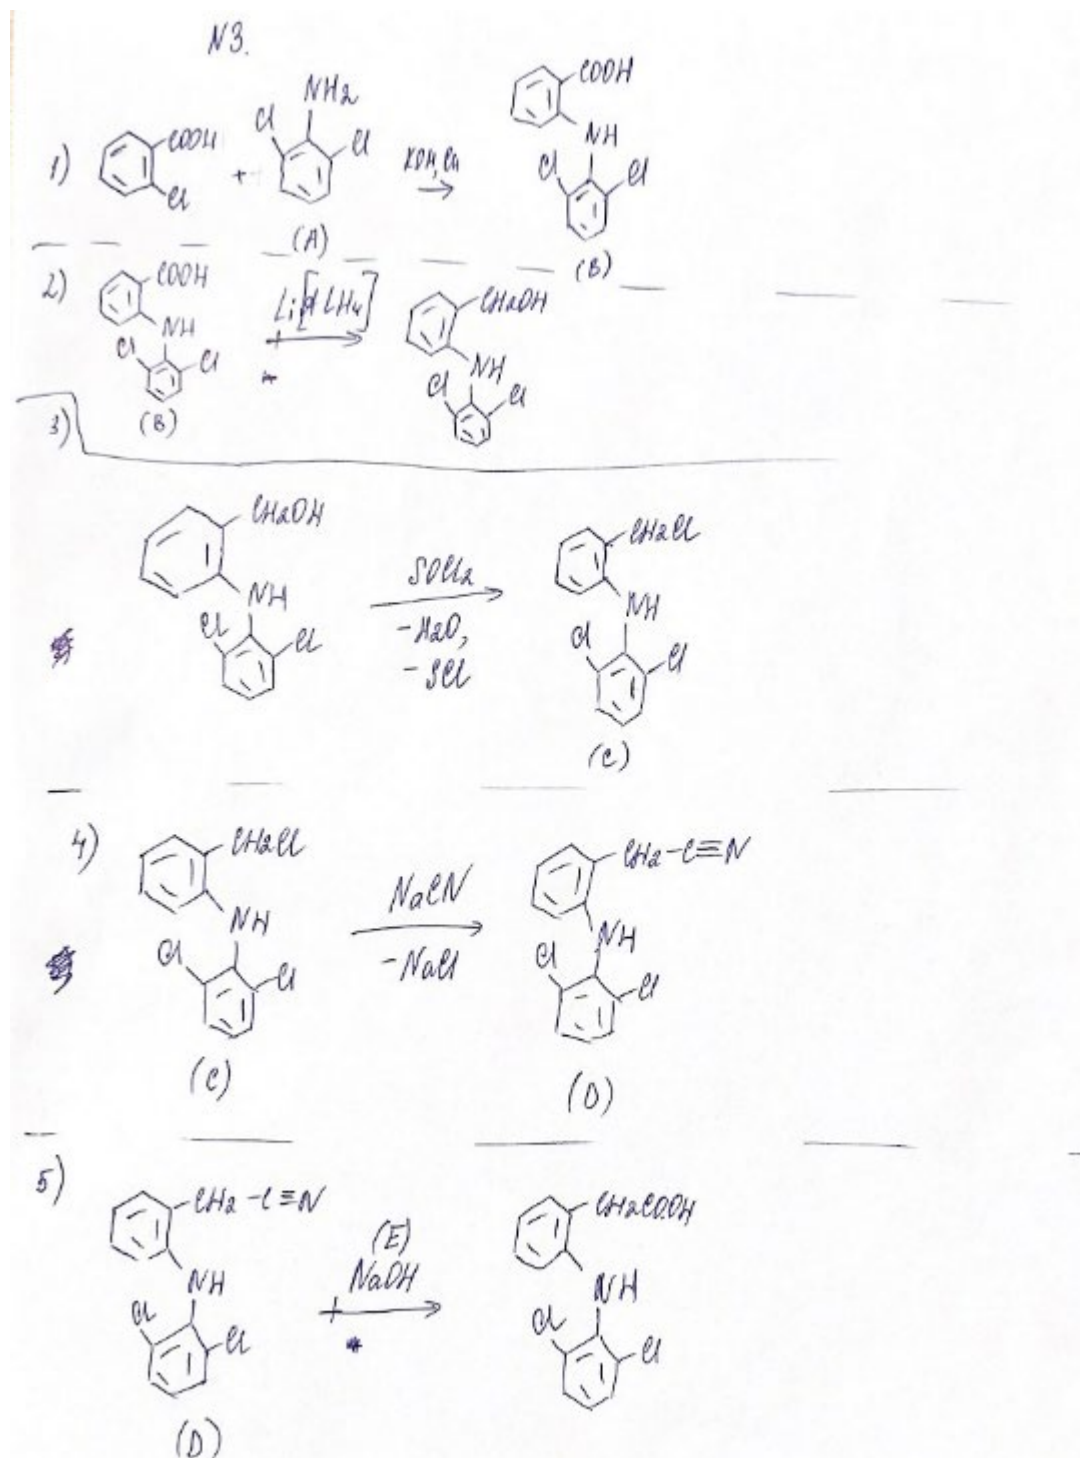 N3.
1) COOH Cl + NH2 Cl Cl (A) KOH, Cu → COOH NH Cl Cl (B)
2) COOH NH Cl Cl (B) + Li[AlH4] → CH2OH NH Cl Cl
3)
CH2OH NH Cl Cl SOCl2 → -H2O, -SCl CH2Cl NH Cl Cl (C)
4) CH2Cl NH Cl Cl (C) NaCN → -NaCl CH2-C≡N NH Cl Cl (D)
5) CH2-C≡N NH Cl Cl (D) + (E) NaOH → CH2COOH NH Cl Cl